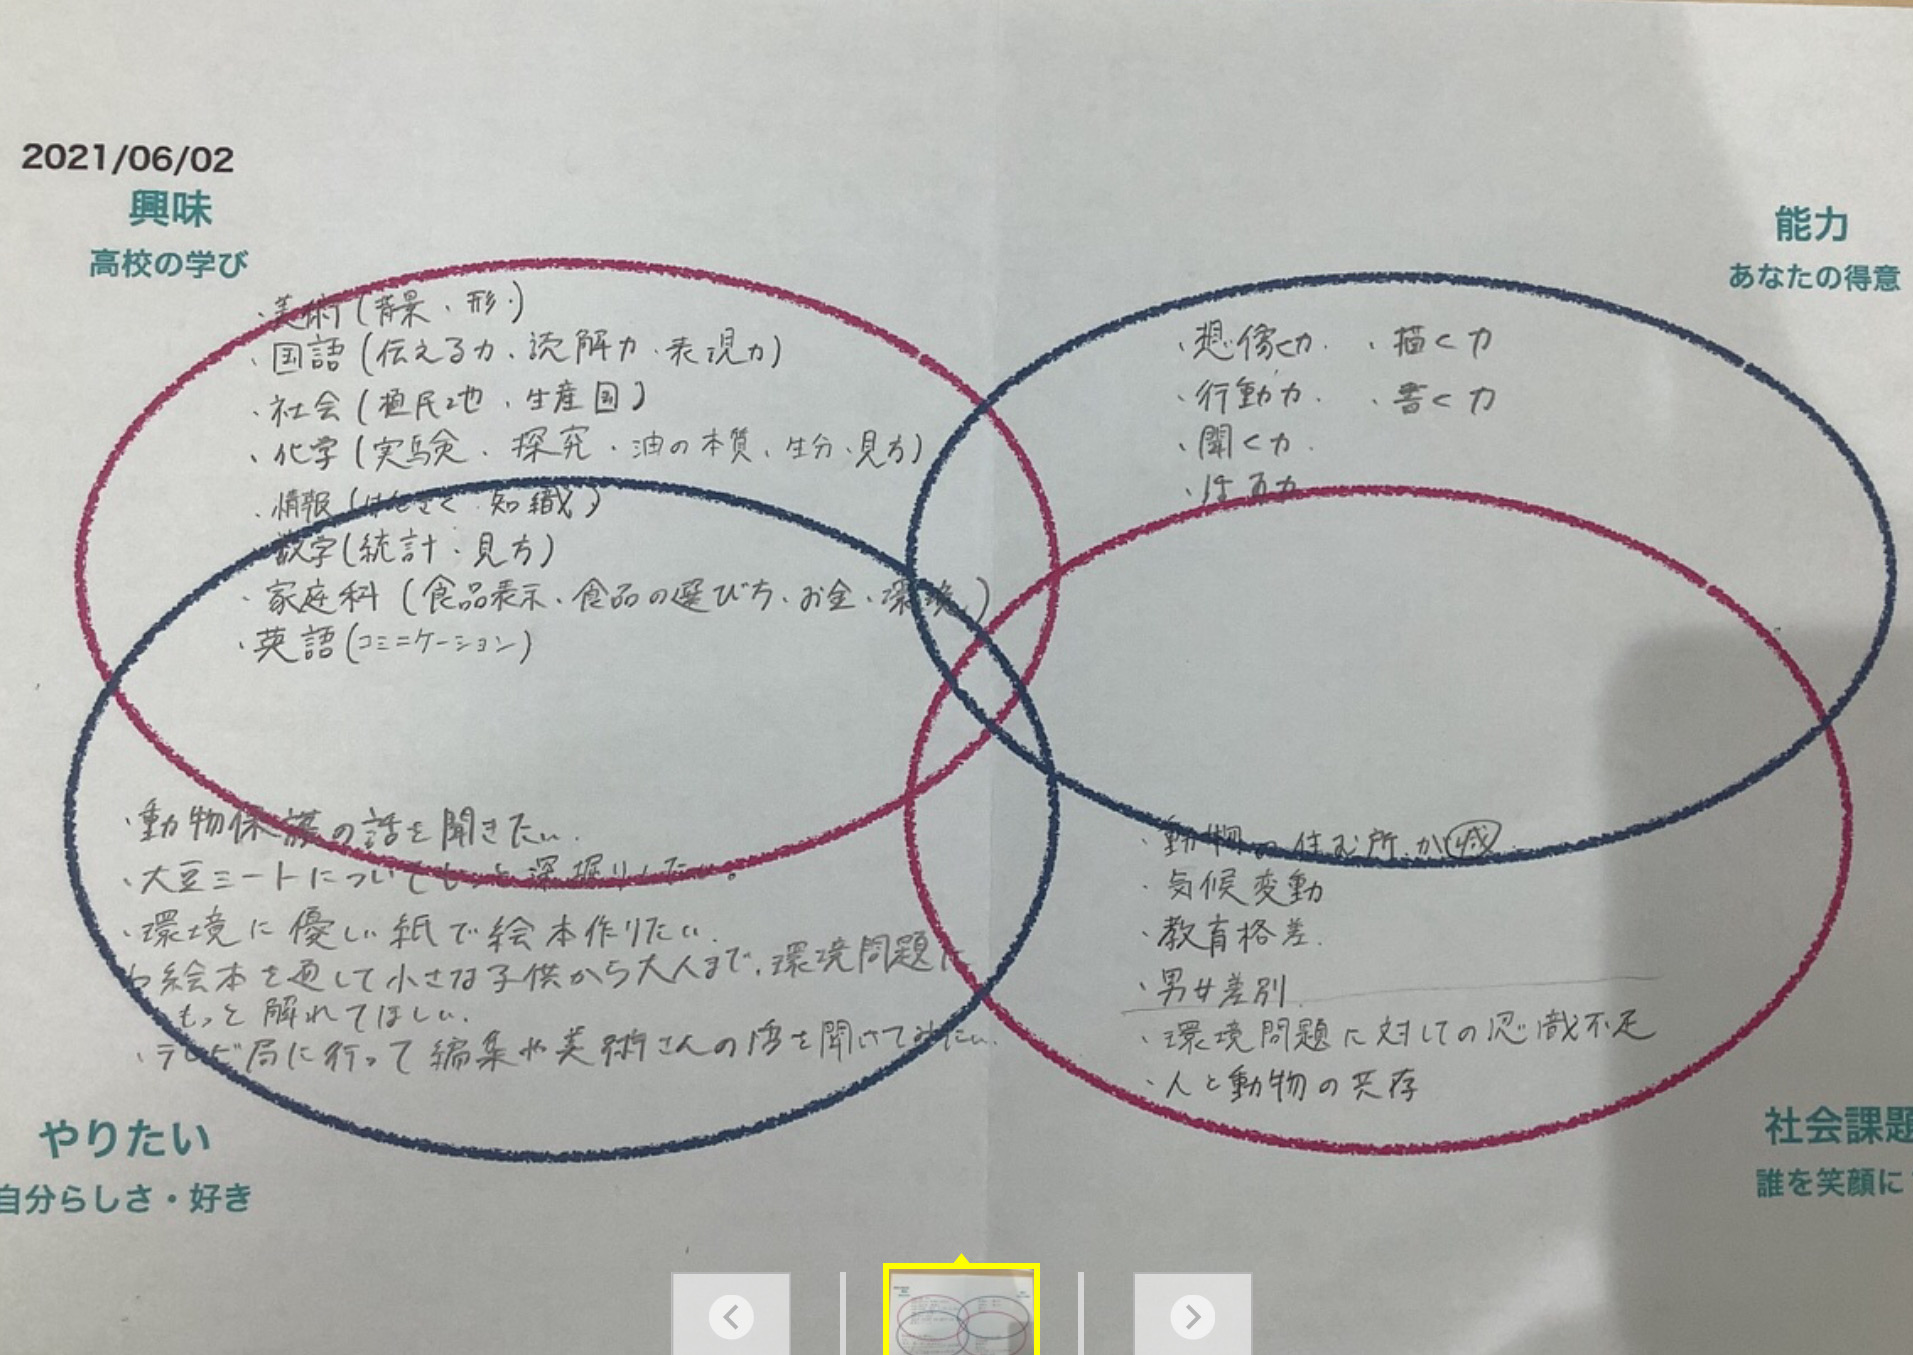 2021/06/02
興味
高校の学び
・美術(背景・形)
・国語(伝える力、読解力・表現力)
・社会(植民地、生産国)
・化学(実験、探究・油の本質、生分、見方)
・情報(けんさく 知識)
数学(統計・見方)
・家庭科(食品表示、食品の選び方、お金、環境)
・英語(コミニケーション)
能力
あなたの得意
・想像力. ・描く力
・行動力. ・書く力
・聞く力.
・動物保護の話を聞きたい.
・大豆ミートについてもっと深掘りしたい。
・環境に優しい紙で絵本作りたい.
絵本を通して小さな子供から大人まで、環境問題に
もっと解れてほしい.
・テレビ局に行って編集や美術さんの話を聞きてみたい.
やりたい
自分らしさ・好き
・動物の住む所が減
・気候変動
・教育格差.
・男女差別.
・環境問題に対しての認識不足
・人と動物の共存
社会課題
誰を笑顔に